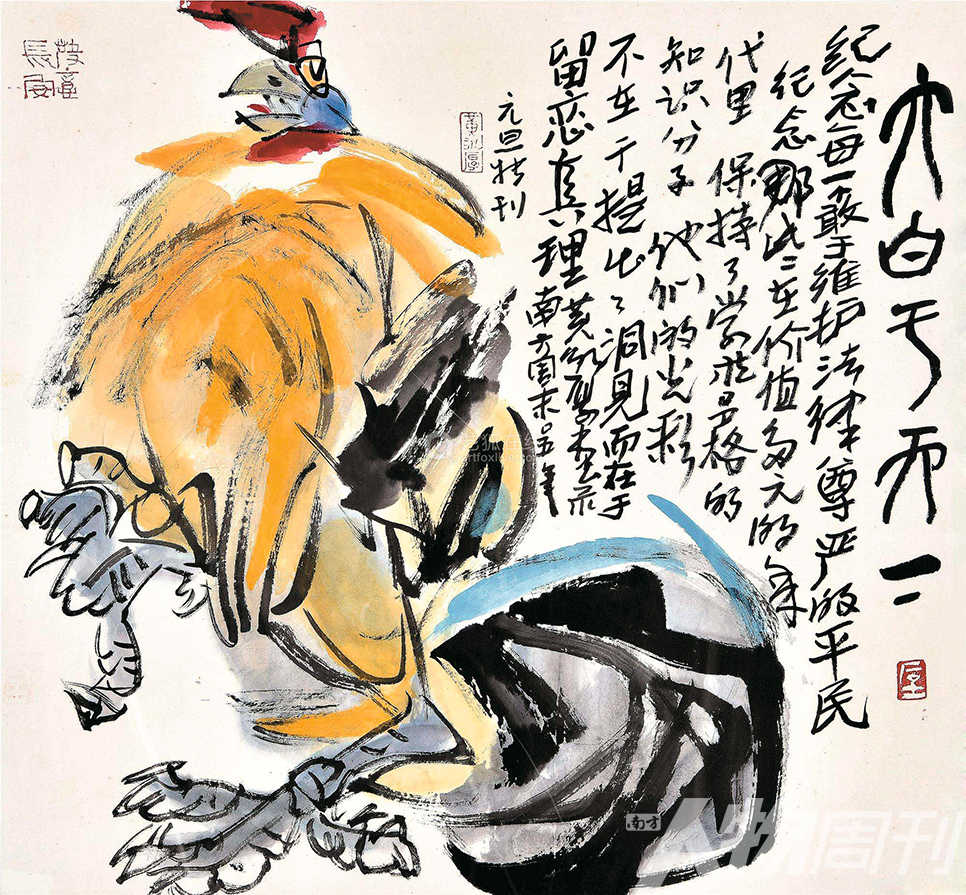 大白于天下
纪念每一敢于维护法律尊严的平民
纪念那些在价值多元的年
代里 保持了学术品格的
知识分子 他们的光彩
不在于提出了洞见而在于
留恋真理 黄永厚
南方周末〇五年
元旦特刊
黄永厚
南方
人物周刊